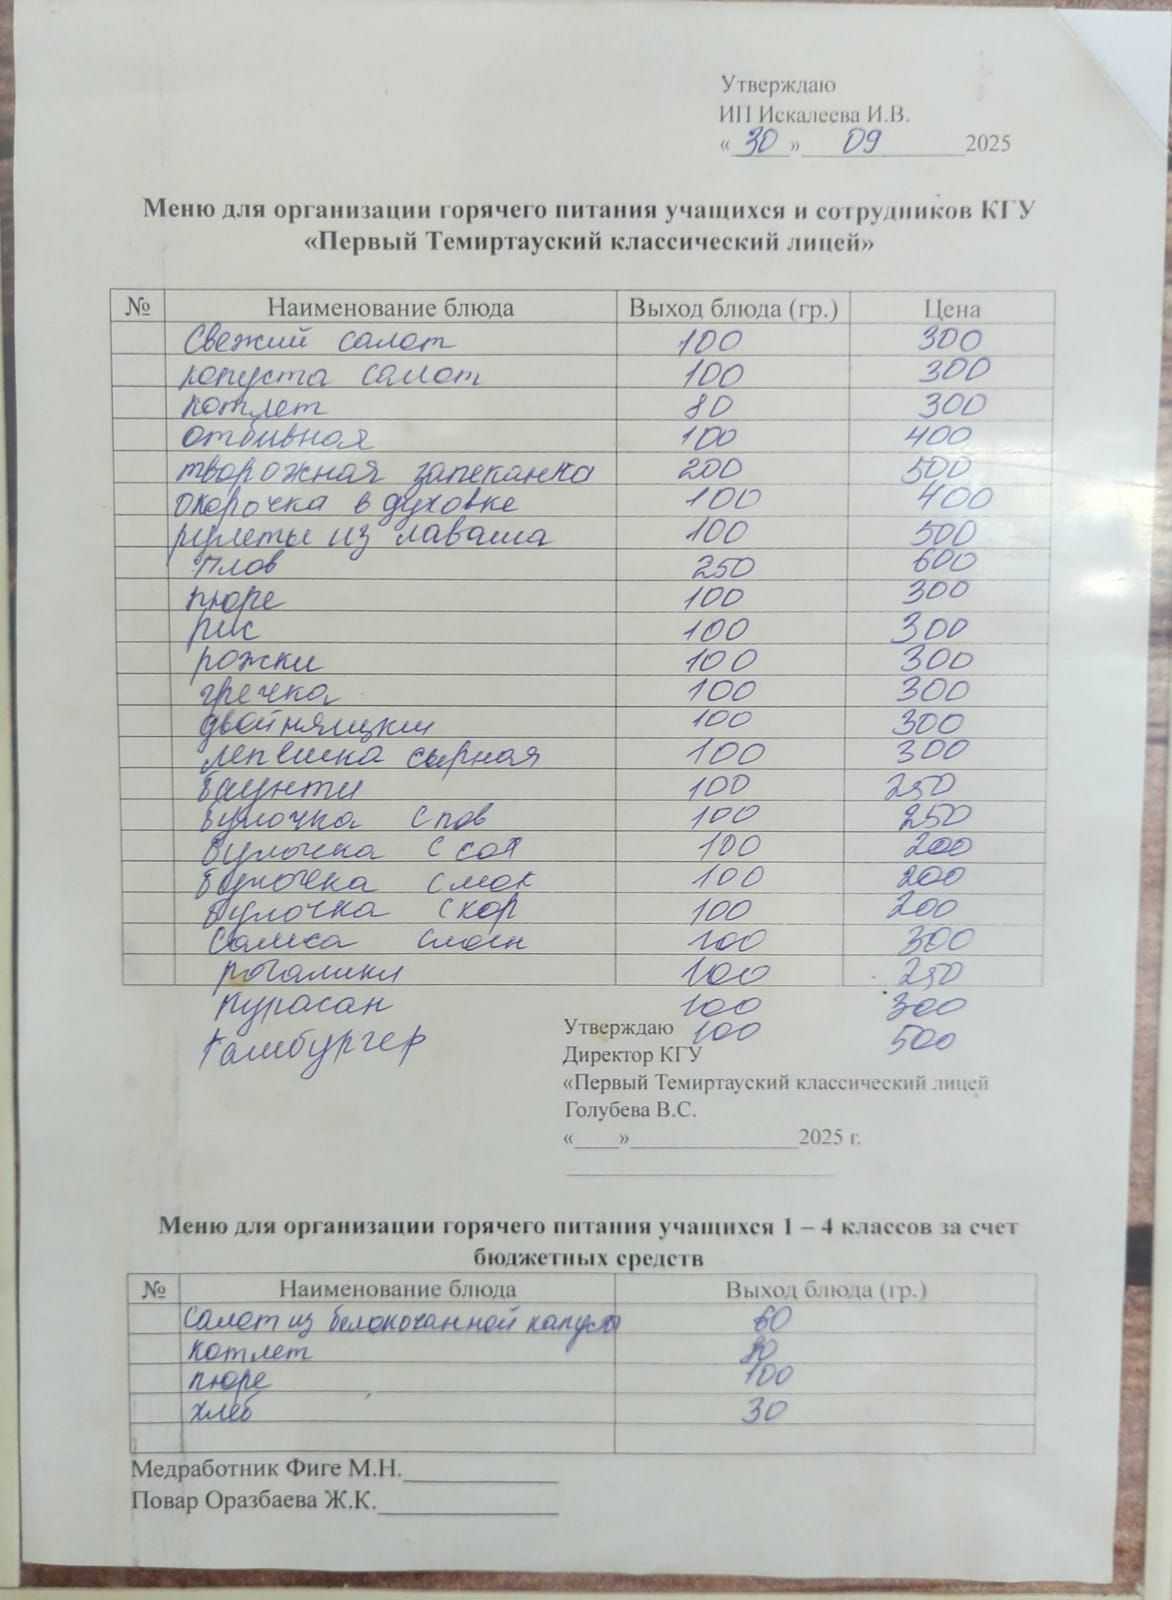 Утверждаю
ИП Искалеева И.В.
«30» 09 2025
Меню для организации горячего питания учащихся и сотрудников КГУ
«Первый Темиртауский классический лицей»
№ Наименование блюда Выход блюда (гр.) Цена
Свежий салат 100 300
капуста салат 100 300
котлет 80 300
отбивная 100 400
творожная запеканка 200 500
окорочка в духовке 100 400
рулеты из лаваша 100 500
плов 250 600
пюре 100 300
рис 100 300
рожки 100 300
гречка 100 300
двойняшки 100 300
лепешка сырная 100 300
баунти 100 250
булочка с пов 100 250
булочка с сах 100 200
булочка с мак 100 200
булочка с кор 100 200
Самса слоен 100 300
рогалики 100 250
курасан 100 300
Гамбургер 100 500
Утверждаю
Директор КГУ
«Первый Темиртауский классический лицей
Голубева В.С.
«____»______________2025 г.
Меню для организации горячего питания учащихся 1 – 4 классов за счет
бюджетных средств
№ Наименование блюда Выход блюда (гр.)
Салат из белокочанной капуста 60
котлет 80
пюре 100
хлеб 30
Медработник Фиге М.Н.____________
Повар Оразбаева Ж.К.______________